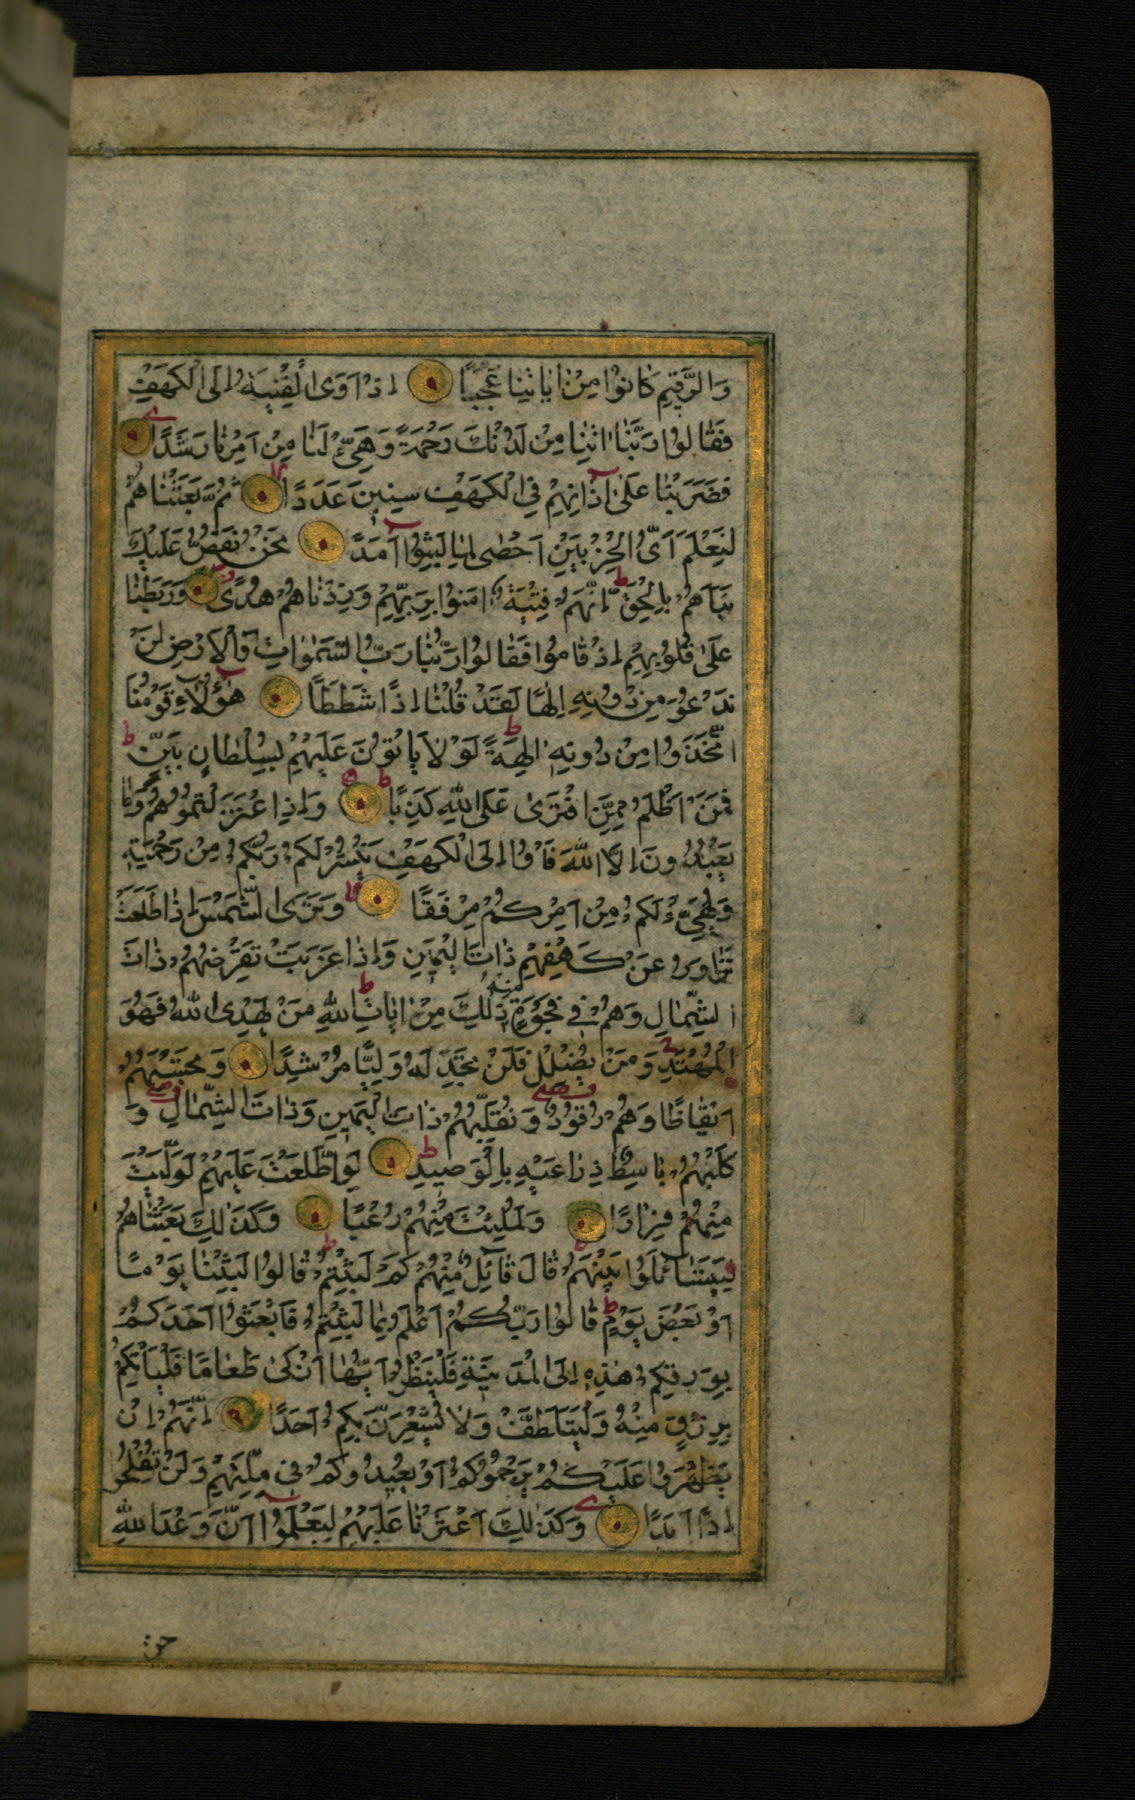 وَالرَّقِيمِ كَانُوا مِنْ اٰيَاتِنَا عَجَبًا اِذْ اَوَى الْفِتْيَةُ اِلَى الْكَهْفِ
فَقَالُوا رَبَّنَا اٰتِنَا مِنْ لَدُنْكَ رَحْمَةً وَهَيِّئْ لَنَا مِنْ اَمْرِنَا رَشَدًا
فَضَرَبْنَا عَلٰى اٰذَانِهِمْ فِي الْكَهْفِ سِنِينَ عَدَدًا ثُمَّ بَعَثْنَاهُمْ
لِنَعْلَمَ اَيُّ الْحِزْبَيْنِ اَحْصٰى لِمَا لَبِثُوا اَمَدًا نَحْنُ نَقُصُّ عَلَيْكَ
نَبَاَهُمْ بِالْحَقِّ اِنَّهُمْ فِتْيَةٌ اٰمَنُوا بِرَبِّهِمْ وَزِدْنَاهُمْ هُدًى وَرَبَطْنَا
عَلٰى قُلُوبِهِمْ اِذْ قَامُوا فَقَالُوا رَبُّنَا رَبُّ السَّمٰوَاتِ وَالْاَرْضِ لَنْ
نَدْعُوَ مِنْ دُونِهِ اِلٰهًا لَقَدْ قُلْنَا اِذًا شَطَطًا هٰؤُلَاءِ قَوْمُنَا
اتَّخَذُوا مِنْ دُونِهِ اٰلِهَةً لَوْلَا يَاْتُونَ عَلَيْهِمْ بِسُلْطَانٍ بَيِّنٍ
فَمَنْ اَظْلَمُ مِمَّنِ افْتَرٰى عَلَى اللّٰهِ كَذِبًا وَاِذِ اعْتَزَلْتُمُوهُمْ وَمَا
يَعْبُدُونَ اِلَّا اللّٰهَ فَاْوُا اِلَى الْكَهْفِ يَنْشُرْ لَكُمْ رَبُّكُمْ مِنْ رَحْمَتِهِ
وَيُهَيِّئْ لَكُمْ مِنْ اَمْرِكُمْ مِرْفَقًا وَتَرَى الشَّمْسَ اِذَا طَلَعَتْ
تَزَاوَرُ عَنْ كَهْفِهِمْ ذَاتَ الْيَمِينِ وَاِذَا غَرَبَتْ تَقْرِضُهُمْ ذَاتَ
الشِّمَالِ وَهُمْ فِي فَجْوَةٍ مِنْهُ ذٰلِكَ مِنْ اٰيَاتِ اللّٰهِ مَنْ يَهْدِى اللّٰهُ فَهُوَ
الْمُهْتَدِ وَمَنْ يُضْلِلْ فَلَنْ تَجِدَ لَهُ وَلِيًّا مُرْشِدًا وَتَحْسَبُهُمْ
اَيْقَاظًا وَهُمْ رُقُودٌ وَنُقَلِّبُهُمْ ذَاتَ الْيَمِينِ وَذَاتَ الشِّمَالِ وَ
كَلْبُهُمْ بَاسِطٌ ذِرَاعَيْهِ بِالْوَصِيدِ لَوِ اطَّلَعْتَ عَلَيْهِمْ لَوَلَّيْتَ
مِنْهُمْ فِرَارًا وَلَمُلِئْتَ مِنْهُمْ رُعْبًا وَكَذٰلِكَ بَعَثْنَاهُمْ
لِيَتَسَائَلُوا بَيْنَهُمْ قَالَ قَائِلٌ مِنْهُمْ كَمْ لَبِثْتُمْ قَالُوا لَبِثْنَا يَوْمًا
اَوْ بَعْضَ يَوْمٍ قَالُوا رَبُّكُمْ اَعْلَمُ بِمَا لَبِثْتُمْ فَابْعَثُوا اَحَدَكُمْ
بِوَرِقِكُمْ هٰذِهِ اِلَى الْمَدِينَةِ فَلْيَنْظُرْ اَيُّهَا اَزْكٰى طَعَامًا فَلْيَاْتِكُمْ
بِرِزْقٍ مِنْهُ وَلْيَتَلَطَّفْ وَلَا يُشْعِرَنَّ بِكُمْ اَحَدًا اِنَّهُمْ اِنْ
يَظْهَرُوا عَلَيْكُمْ يَرْجُمُوكُمْ اَوْ يُعِيدُوكُمْ فِي مِلَّتِهِمْ وَلَنْ تُفْلِحُوا
اِذًا اَبَدًا وَكَذٰلِكَ اَعْثَرْنَا عَلَيْهِمْ لِيَعْلَمُوا اَنَّ وَعْدَ اللّٰهِ
حق